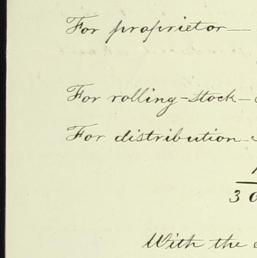 For proprietor—
For rolling-stock—
For distribution—
30
With the